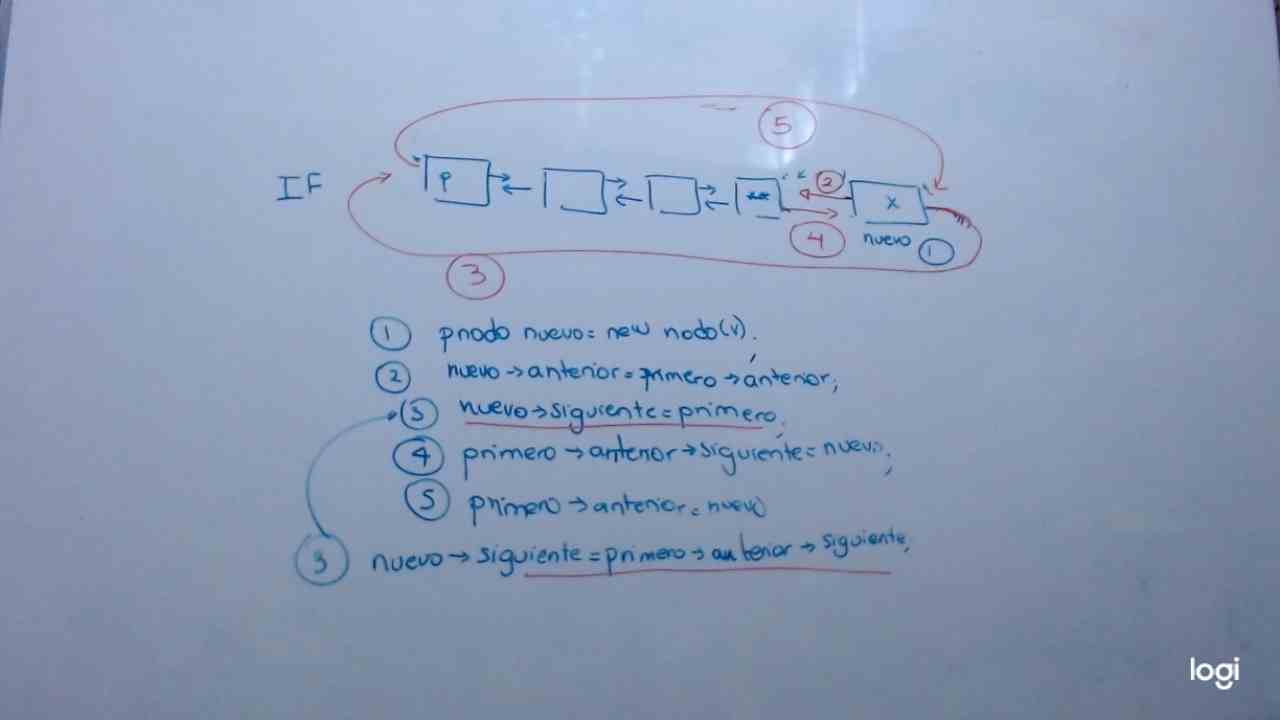 5
IF
P
2
**
x
4
nuevo 1
3
1 pnodo nuevo = new nodo(v).
2 nuevo → anterior = primero → anterior;
3 nuevo → siguiente = primero;
4 primero → anterior → siguiente = nuevo;
5 primero → anterior = nuevo
3 nuevo → siguiente = primero → anterior → siguiente;
logi